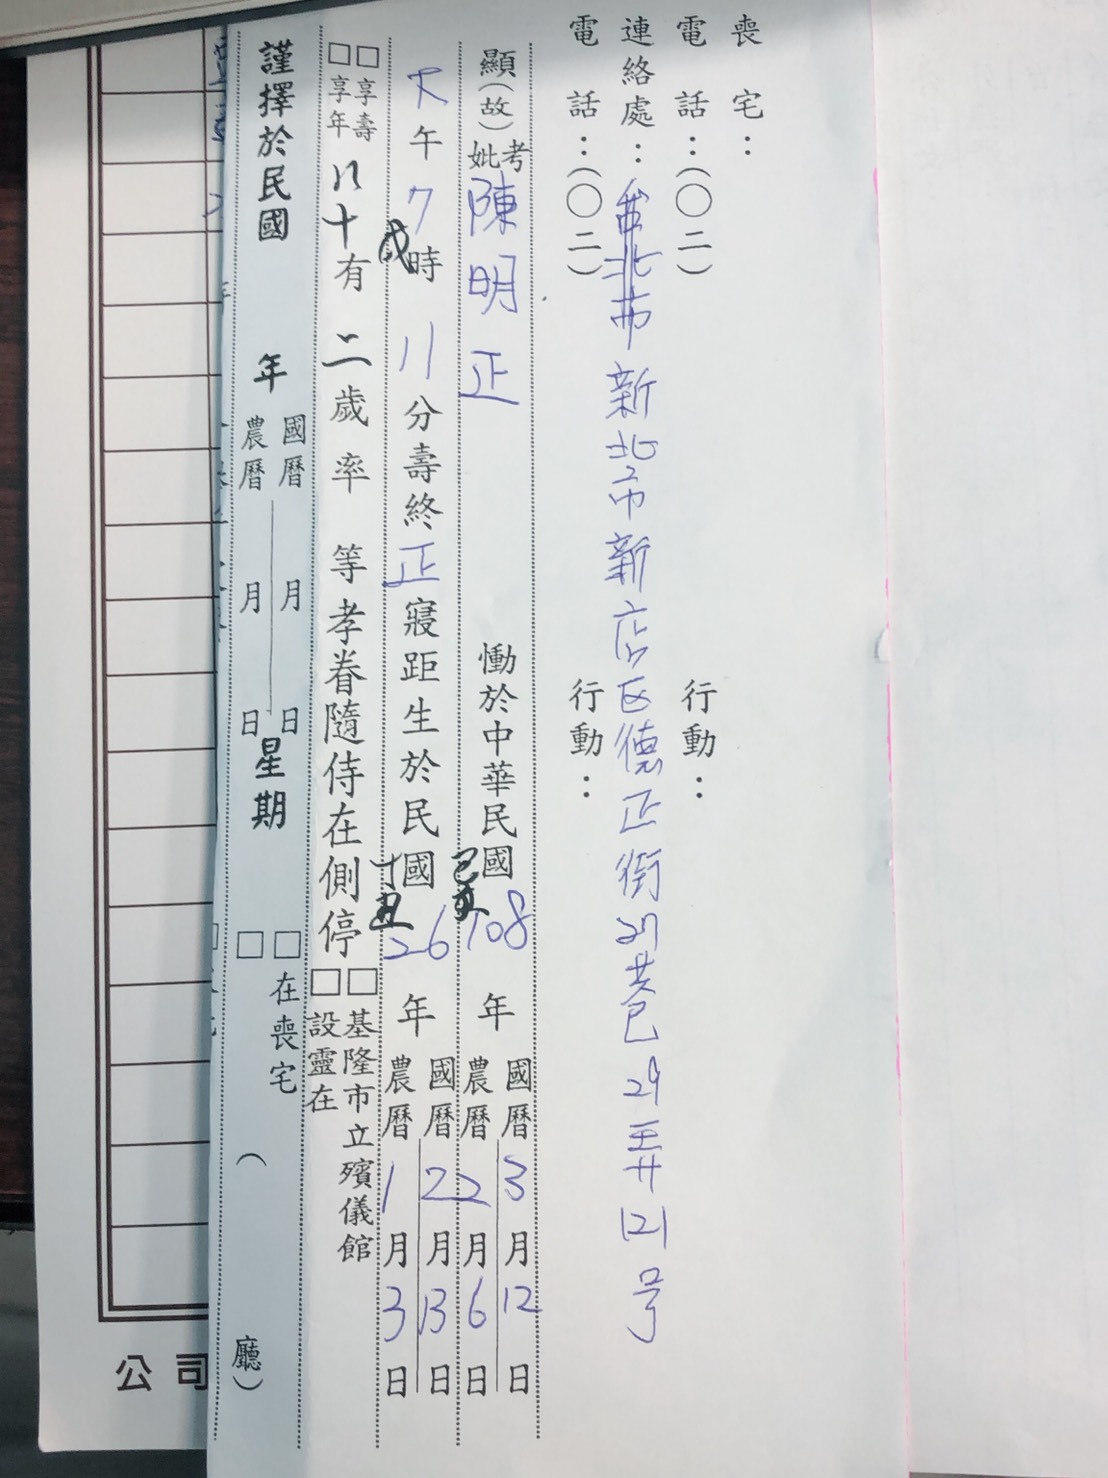 喪宅：
電話：（〇二） 行動：
連絡處：台北市新北市新店区德正街27巷29弄121号
電話：（〇二） 行動：
顯（故）考妣陳明正 慟於中華民國己亥108年國曆3月12日農曆2月6日
下午7戌時11分壽終正寢距生於民國丁丑26年國曆2月13日農曆1月3日
□享壽□享年八十有二歲率 等孝眷隨侍在側停□基隆市立殯儀館□設靈在
謹擇於民國 年國曆 月 日農曆 月 日星期 □在喪宅□（ 廳）
公司